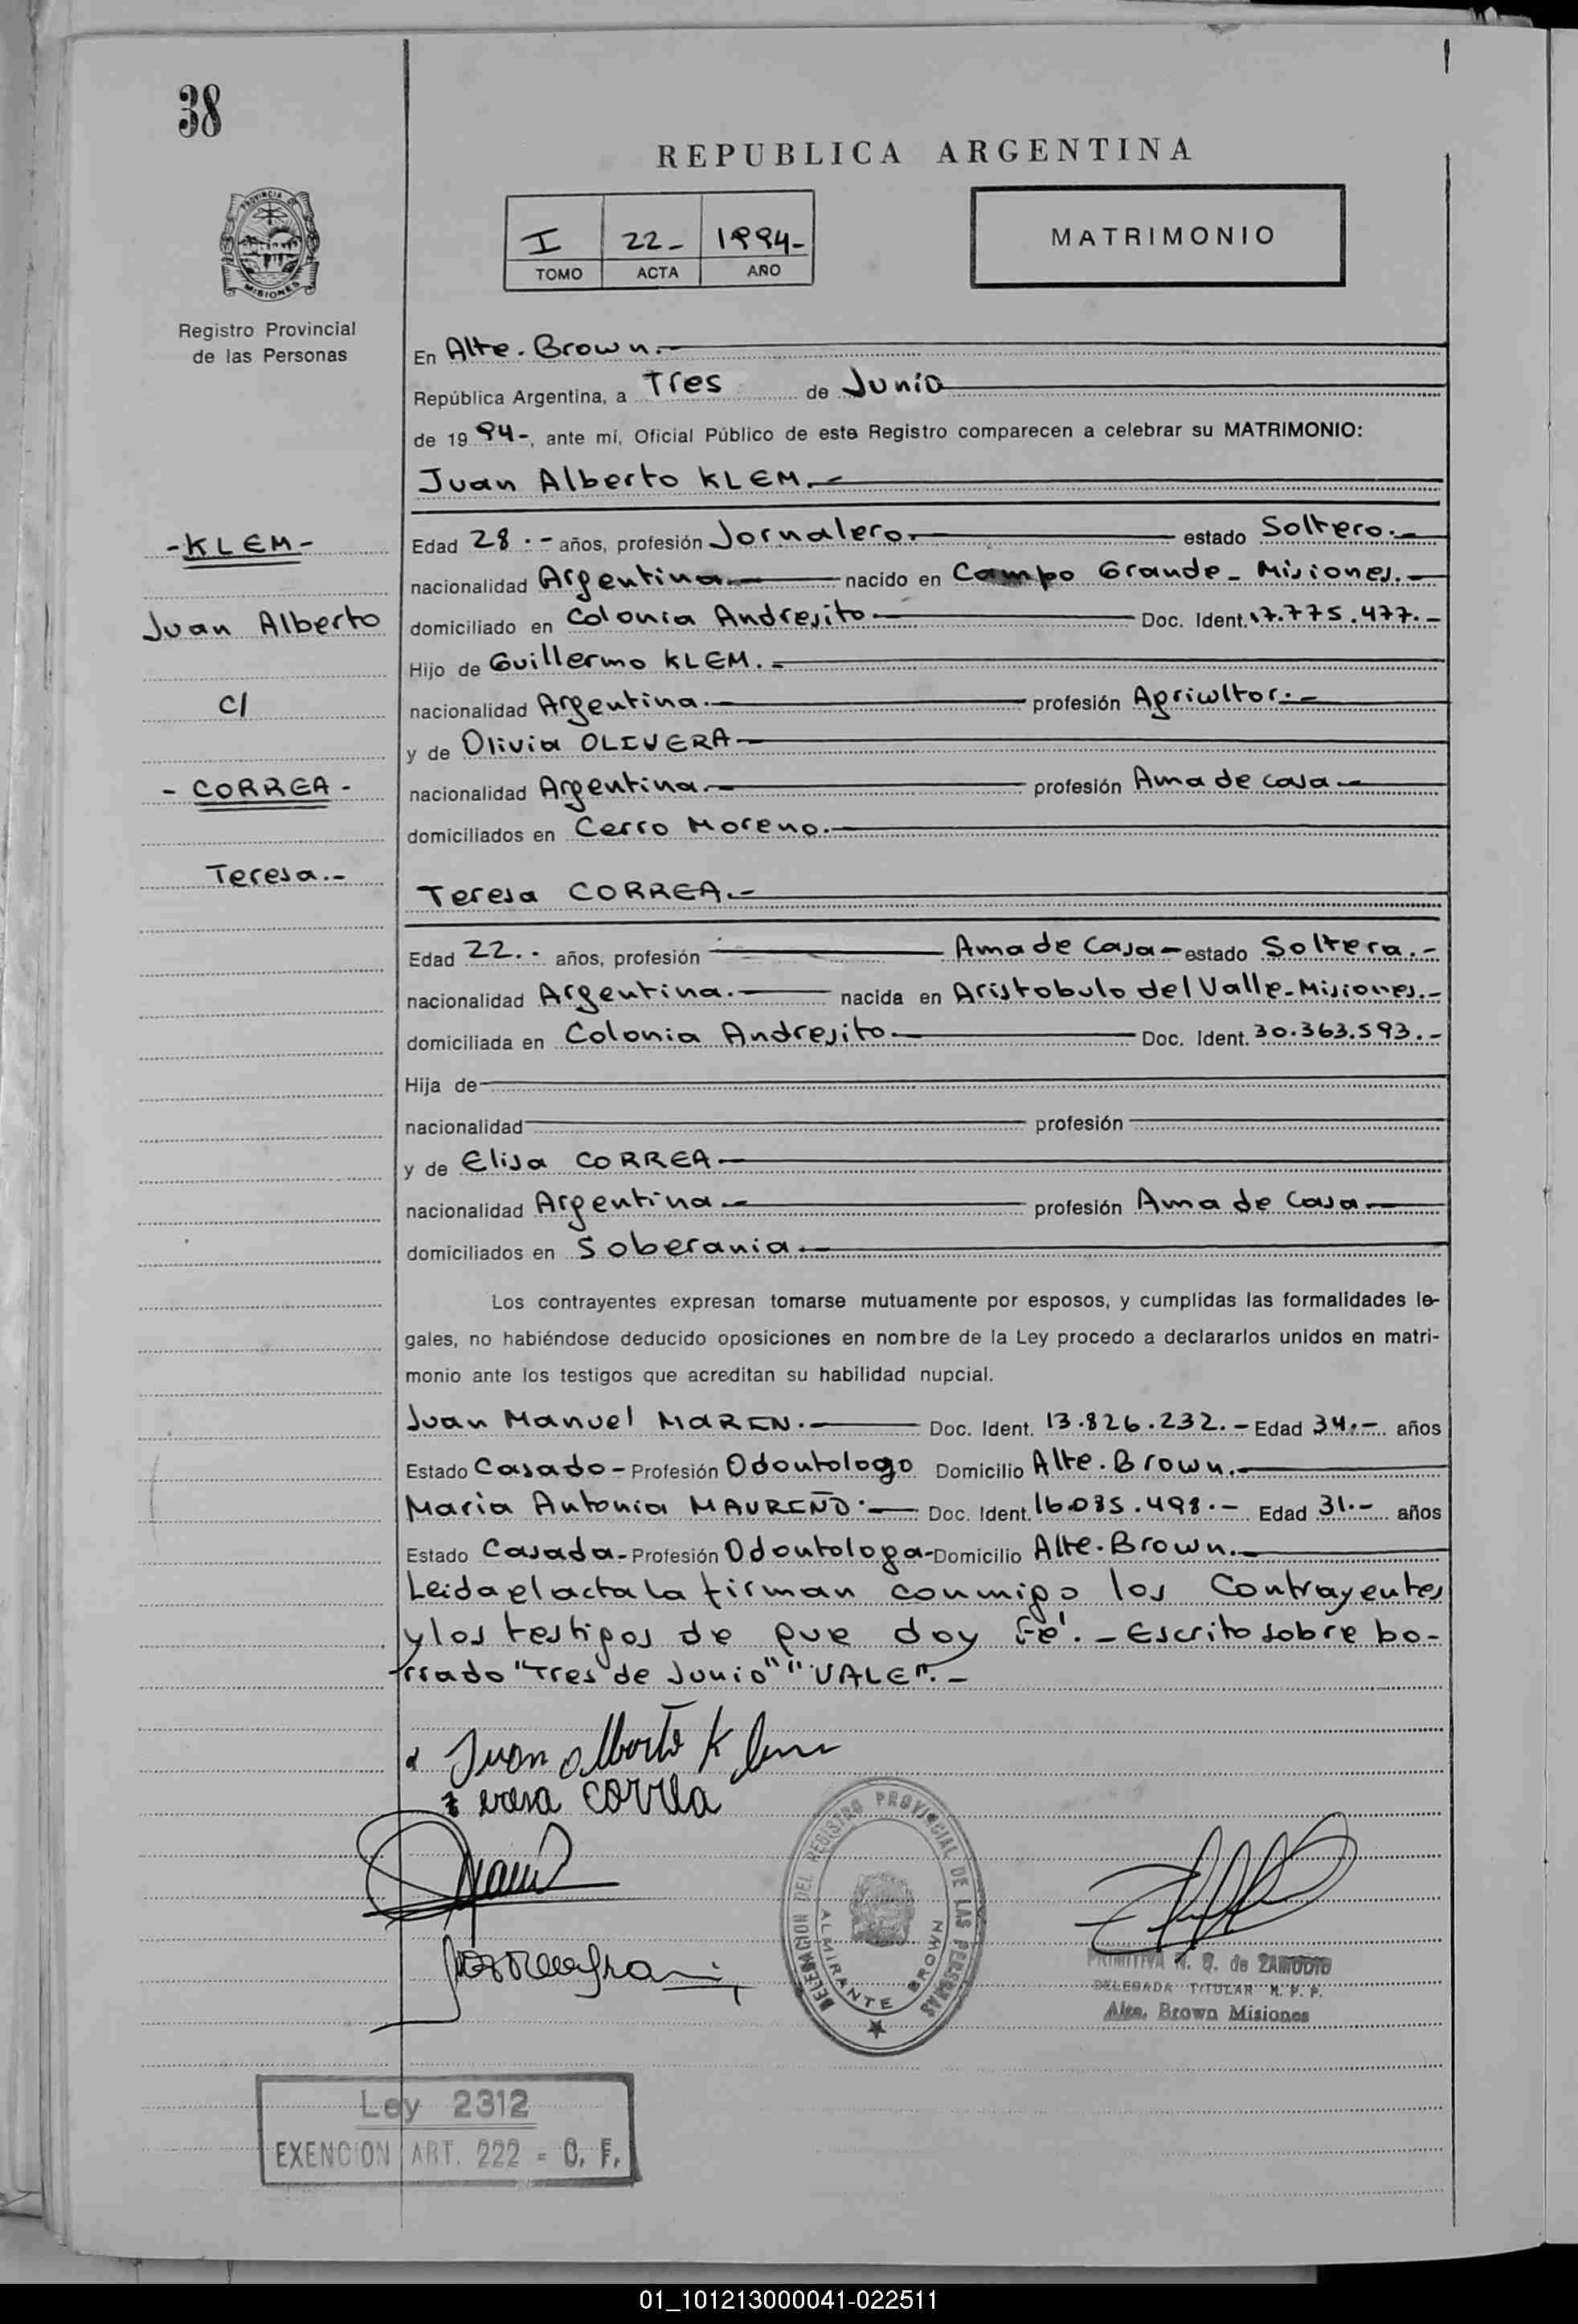 38
REPUBLICA ARGENTINA
I 22- 1994-
TOMO ACTA AÑO
MATRIMONIO
PROVINCIA DE
MISIONES
Registro Provincial
de las Personas
En Alte. Brown.-
República Argentina, a Tres de Junio
de 1994-, ante mí, Oficial Público de este Registro comparecen a celebrar su MATRIMONIO:
Juan Alberto KLEM.-
-KLEM-
Juan Alberto
c/
-CORREA-
Teresa.-
Edad 28.- años, profesión Jornalero.- estado Soltero.-
nacionalidad Argentina.- nacido en Campo Grande-Misiones.-
domiciliado en Colonia Andresito- Doc. Ident. 17.775.477.-
Hijo de Guillermo KLEM.-
nacionalidad Argentina.- profesión Agricultor.-
y de Olivia OLIVERA-
nacionalidad Argentina.- profesión Ama de casa.-
domiciliados en Cerro Moreno.-
Teresa CORREA.-
Edad 22.- años, profesión Ama de Casa- estado Soltera.-
nacionalidad Argentina.- nacida en Aristobulo del Valle-Misiones.-
domiciliada en Colonia Andresito.- Doc. Ident. 30.363.593.-
Hija de
nacionalidad profesión
y de Elisa CORREA.-
nacionalidad Argentina.- profesión Ama de Casa.-
domiciliados en Soberania.-
Los contrayentes expresan tomarse mutuamente por esposos, y cumplidas las formalidades le-
gales, no habiéndose deducido oposiciones en nombre de la Ley procedo a declararlos unidos en matri-
monio ante los testigos que acreditan su habilidad nupcial.
Juan Manuel MAREN.- Doc. Ident. 13.826.232.- Edad 34.- años
Estado Casado- Profesión Odontologo Domicilio Alte. Brown.-
Maria Antonia MAUREÑO.- Doc. Ident. 16.085.498.- Edad 31.- años
Estado Casada- Profesión Odontologa- Domicilio Alte. Brown.-
Leida el acta la firman conmigo los Contrayentes
y los testigos de que doy Fé.- Escrito sobre bo-
rrado "Tres de Junio" "VALE".-
Juan Alberto Klem
correa
DELEGACION DEL REGISTRO PROVINCIAL DE LAS PERSONAS
ALMIRANTE BROWN
PRIMITIVA N. Q. de ZAMUDIO
DELEGADA TITULAR R. P. P.
Alte. Brown Misiones
Ley 2312
EXENCION ART. 222 - C. F.
01_101213000041-022511